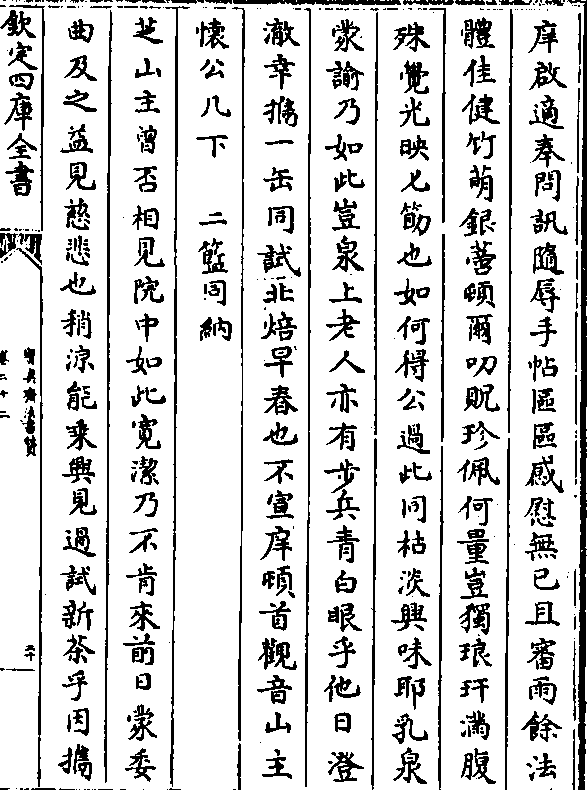 庠啟適奉問訊隨辱手帖區區感慰無已且審雨餘法
體佳健竹萌銀薯頓爾叨貺珍佩何量豈獨琅玕滿腹
殊覺光映匕筯也如何得公過此同枯淡興味耶乳泉
蒙諭乃如此豈泉上老人亦有步兵青白眼乎他日澄
澈幸攜一缶同試北焙早春也不宣庠頓首觀音山主
懷公几下 二籃同納
芝山主曾否相見院中如此寬潔乃不肯來前日蒙委
曲及之益見慈悲也稍涼能乗興見過試新茶乎因攜
欽定四庫全書
寳真齋法書贊
卷二十二
二十